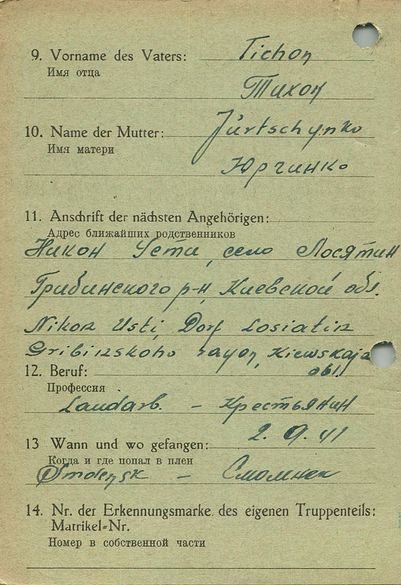 9. Vorname des Vaters: Tichon
Имя отца
Тихон
10. Name der Mutter: Jürtschynko
Имя матери
Юрчинко
11. Anschrift der nächsten Angehörigen:
Адрес ближайших родственников
Никон Усти, село Лосятин
Грибинского р-н, Киевской обл.
Nikon Usti, Dorf Losiatin
Gribinskoho rayon, Kiewskaja
obl.
12. Beruf:
Профессия
Landarb. - Крестьянин
13 Wann und wo gefangen: 2. 9. 41
Когда и где попал в плен
Smolensk - Смоленск
14. Nr. der Erkennungsmarke des eigenen Truppenteils:
Matrikel-Nr.
Номер в собственной части